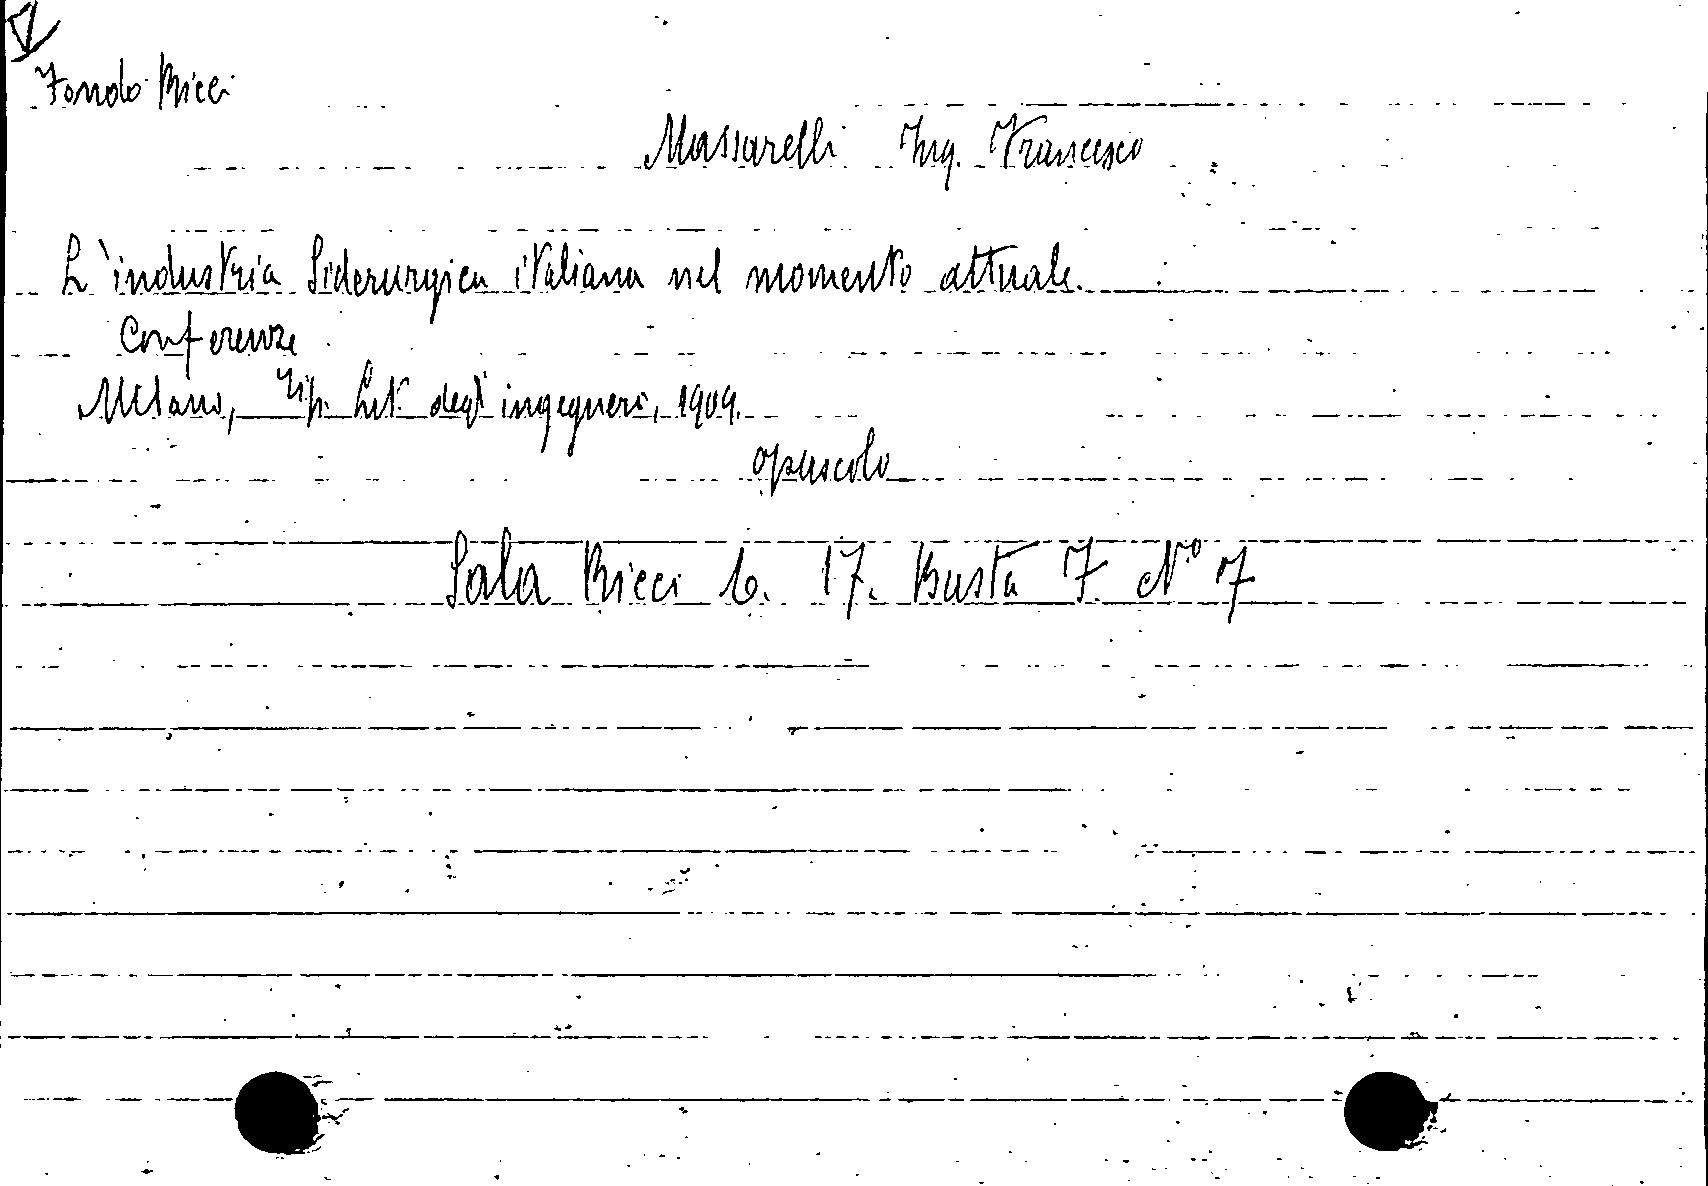 Fondo Ricci
Massarelli Ing. Francesco
L'industria Siderurgica italiana nel momento attuale.
Conferenze
Milano, Tip. Lit. degl' ingegneri, 1909.
opuscolo
Sala Ricci b. 17. Busta 7. N° 7